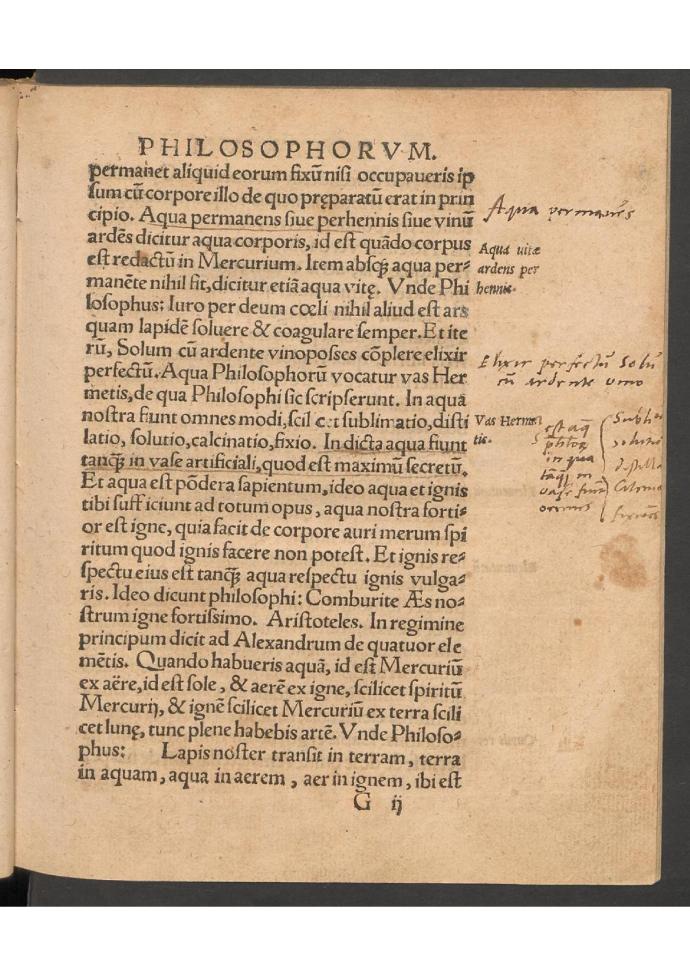 PHILOSOPHORVM.
permanet aliquid eorum fixū nisi occupaueris ip
sum cū corpore illo de quo pręparatū erat in prin
cipio. Aqua permanens siue perhennis siue vinū
ardēs dicitur aqua corporis, id est quādo corpus
est redactū in Mercurium. Item absqꝫ aqua per⸗
manēte nihil fit, dicitur etiā aqua vitę. Vnde Phi
losophus: Iuro per deum cœli nihil aliud est ars
quam lapidē soluere & coagulare semper. Et ite
rū, Solum cū ardente vino posses cōplere elixir
perfectū. Aqua Philosophorū vocatur vas Her
metis, de qua Philosophi sic scripserunt. In aqua
nostra fiunt omnes modi, scil cet sublimatio, disti
latio, solutio, calcinatio, fixio. In dicta aqua fiunt
tanqꝫ in vase artificiali, quod est maximū secretū.
Et aqua est pōdera sapientum, ideo aqua et ignis
tibi sufficiunt ad totum opus, aqua nostra forti⸗
or est igne, quia facit de corpore auri merum spi
ritum quod ignis facere non potest. Et ignis re⸗
spectu eius est tanqꝫ aqua respectu ignis vulga⸗
ris. Ideo dicunt philosophi: Comburite Æs no⸗
strum igne fortissimo. Aristoteles. In regimine
principum dicit ad Alexandrum de quatuor ele
mētis. Quando habueris aquā, id est Mercuriū
ex aëre, id est sole, & aerē ex igne, scilicet spiritū
Mercurij, & ignē scilicet Mercuriū ex terra scili
cet lunę, tunc plene habebis artē. Vnde Philoso⸗
phus: Lapis noster transit in terram, terra
in aquam, aqua in aerem, aer in ignem, ibi est
G ij
Aqua permanēs
Aqua uitæ
ardens per
hennis.
Elixir perfectū Solū
cū ardente vino
Vas Herme⸗
tis.
est aq̄
in qua
vase fiunt
omnes